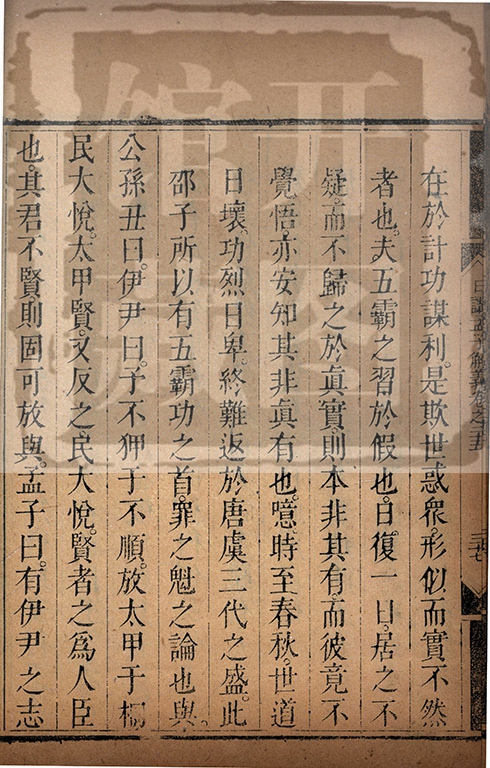 在於計功謀利。是欺世惑衆。形似而實不然
者也。夫五霸之習於假也。日復一日。居之不
疑。而不歸之於眞實。則本非其有。而彼竟不
覺悟。亦安知其非眞有也。噫。時至春秋。世道
日壞。功烈日卑。終難返於唐虞三代之盛。此
邵子所以有五霸功之首。罪之魁之論也與。
公孫丑曰。伊尹曰。予不狎于不順。放太甲于桐
民大悅。太甲賢。又反之。民大悅。賢者之爲人臣
也。其君不賢。則固可放與。孟子曰。有伊尹之志
日講孟子解義卷之二十五